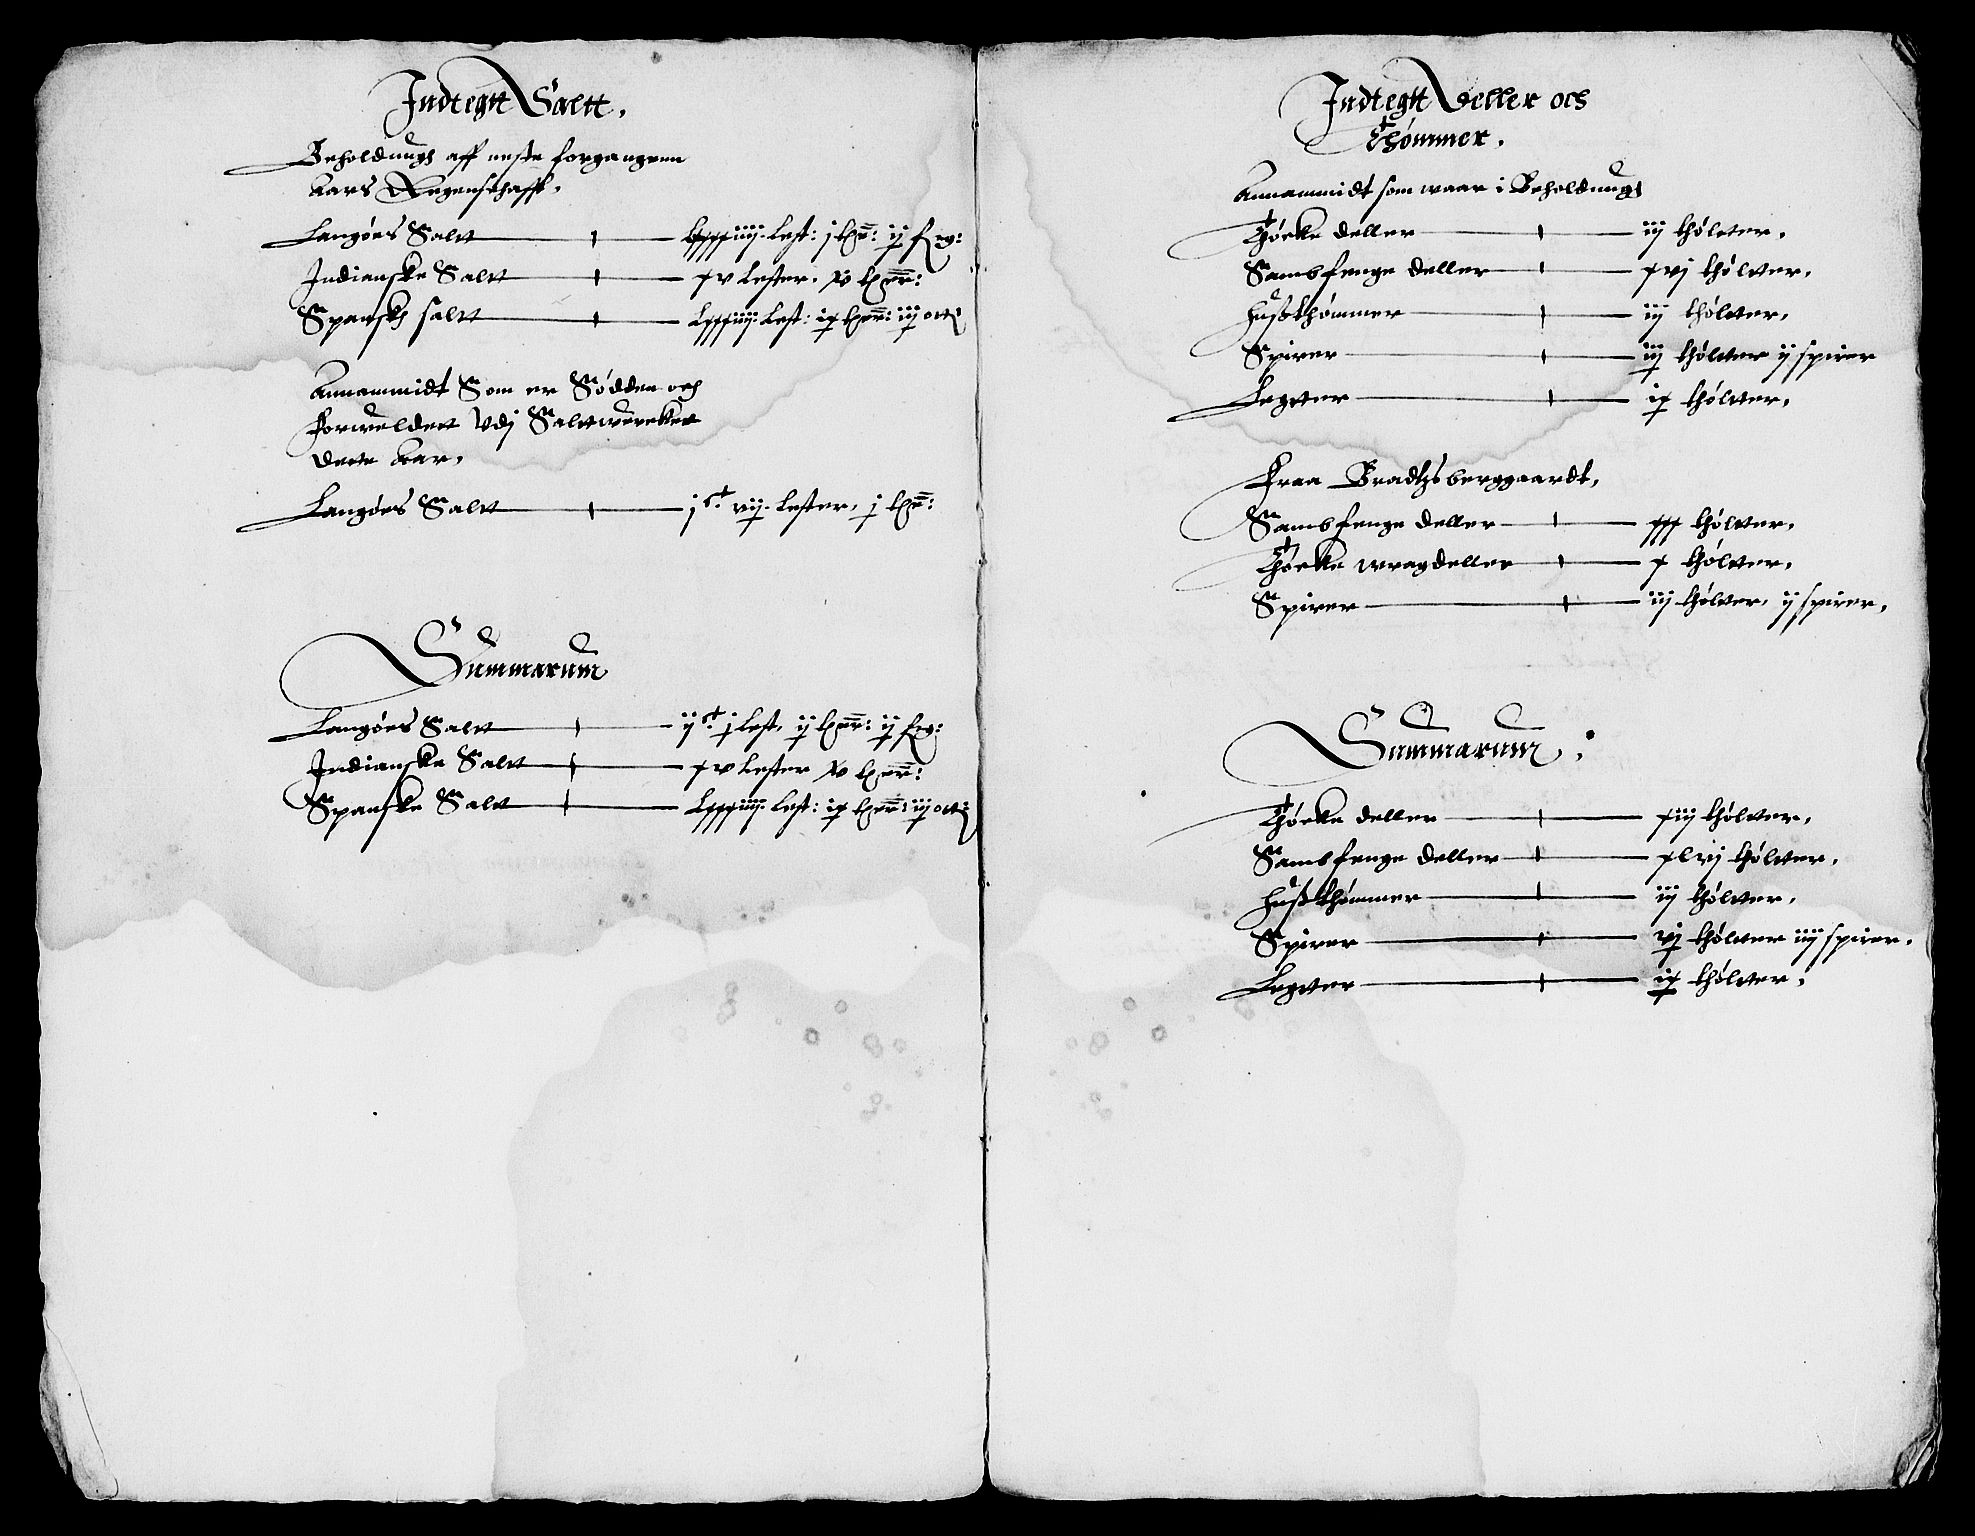 Indtegtt Saltt.
Beholdnings aff neste forgangenn
Aars Regenschafft.
Langøes Saltt — lxxxxiiij. Lest: j tør: ij frg:
Indianske Saltt — xv Lester. xv tør:
Spansk saltt — Lxxxiiij. Lest: ix tør: iij ott
Annammidt Som er Södden och
forweldett Vdj Saltwercket
dette Aar.
Langøes Saltt — jc. vij. Lester. j tør:
Summarum
Langøes Saltt — ijc. j Lest. ij tør: ij frg:
Indianske Saltt — xv Lester xv tør:
Spanske Saltt — Lxxxiiij. Lest: ix tør: iij ott
Indtegtt Deller och
Thømmer.
Annammidt som waar i Beholdnings
Tyècke deller — iij thölter.
Sambfenge deller — xvj thölter.
Hussthømmer — iij thölter.
Spirer — iij thölter ij spirer
Legtter — ix thölter.
Fraa Bradtzberggaardt.
Sambfenge deller — xxx thölter.
Tyècke wragdeller — x thölter.
Spirer — iij thölter. ij spirer.
Summarum.
Tyècke deller — xiij thölter.
Sambfenge deller — xlvj thölter.
Hussthømmer — iij thölter.
Spirer — vj thölter iiij spirer.
Legtter — ix thölter.